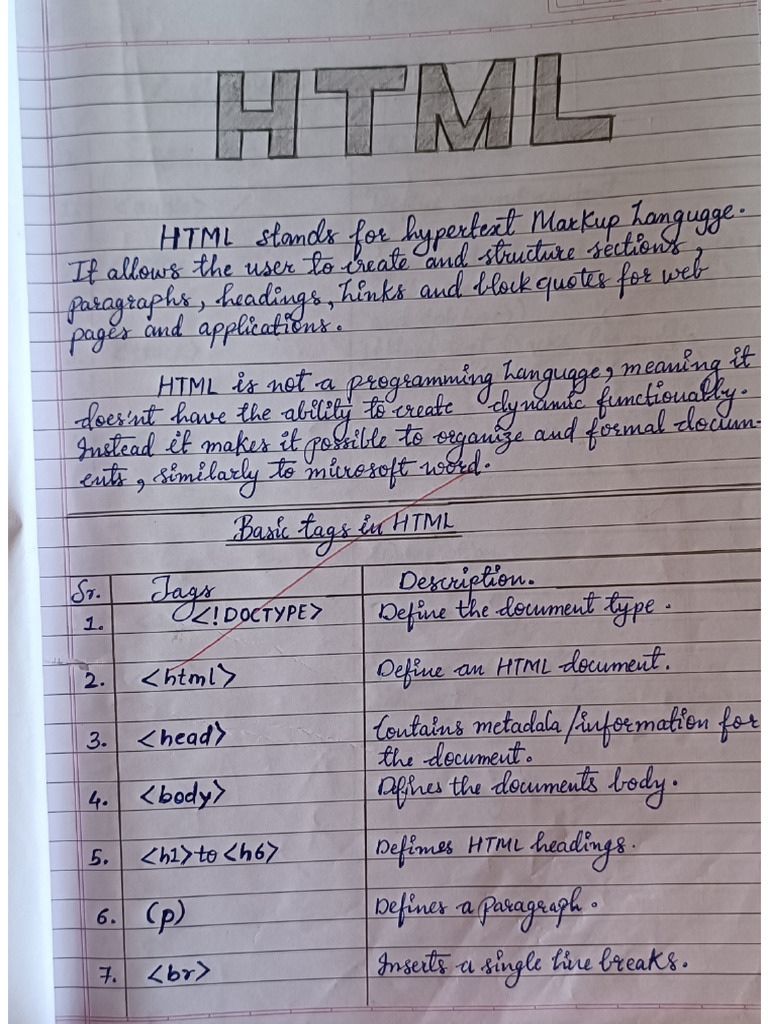 HTML
HTML stands for hypertext Markup Langugge.
It allows the user to create and structure sections,
paragraphs, headings, Links and blockquotes for web
pages and applications.
HTML is not a programming Language, meaning it
does'nt have the ability to create dynamic functionally.
Instead it makes it possible to organize and formal docum-
ents, similarly to microsoft word.
Basic tags in HTML
Sr. Tags Description.
1. <!DOCTYPE> Define the document type.
2. <html> Define an HTML document.
3. <head> Contains metadala/information for
the document.
4. <body> Dfines the documents body.
5. <h1> to <h6> Defimes HTML headings.
6. (p) Defines a paragraph.
7. <br> Inserts a single line breaks.